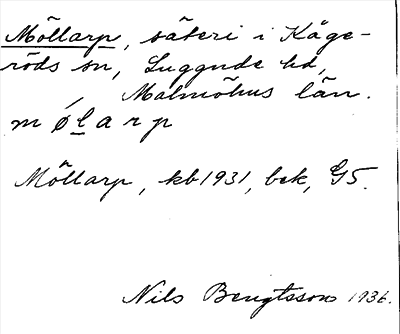 Möllarp, säteri i Kåge-
röds sn, Luggude hd,
Malmöhus län.
mǿlarp
Möllarp, kb 1931, bek, G5.
Nils Bengtsson 1936.